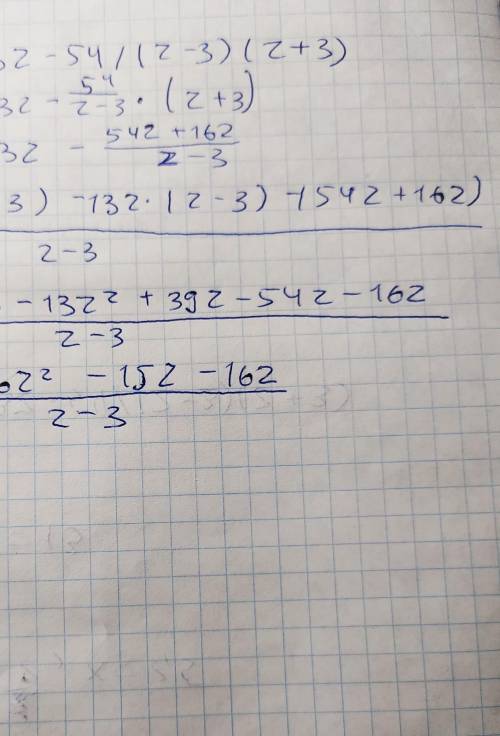 3z - 54 / (z - 3)(z + 3)
3z - 54/(z - 3) · (z + 3)
3z - (54z + 162)/(z - 3)
3) - 13z · (z - 3) - (54z + 162)
z - 3
- 13z² + 39z - 54z - 162
z - 3
z² - 15z - 162
z - 3